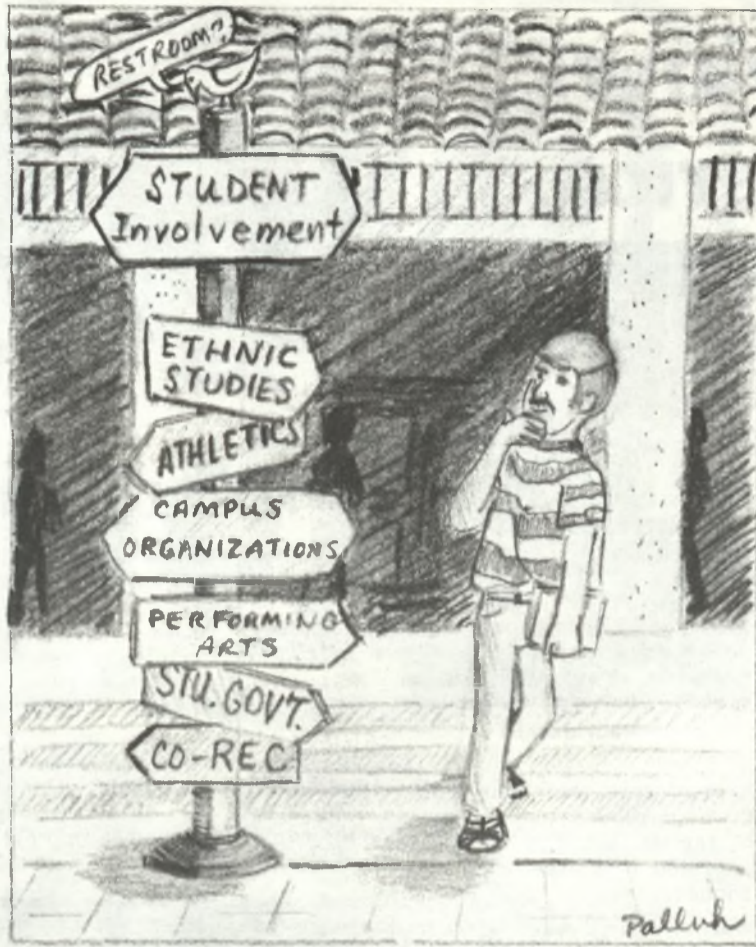 RESTROOM?
STUDENT
Involvement
ETHNIC
STUDIES
ATHLETICS
CAMPUS
ORGANIZATIONS
PERFORMING
ARTS
STU. GOVT.
CO-REC